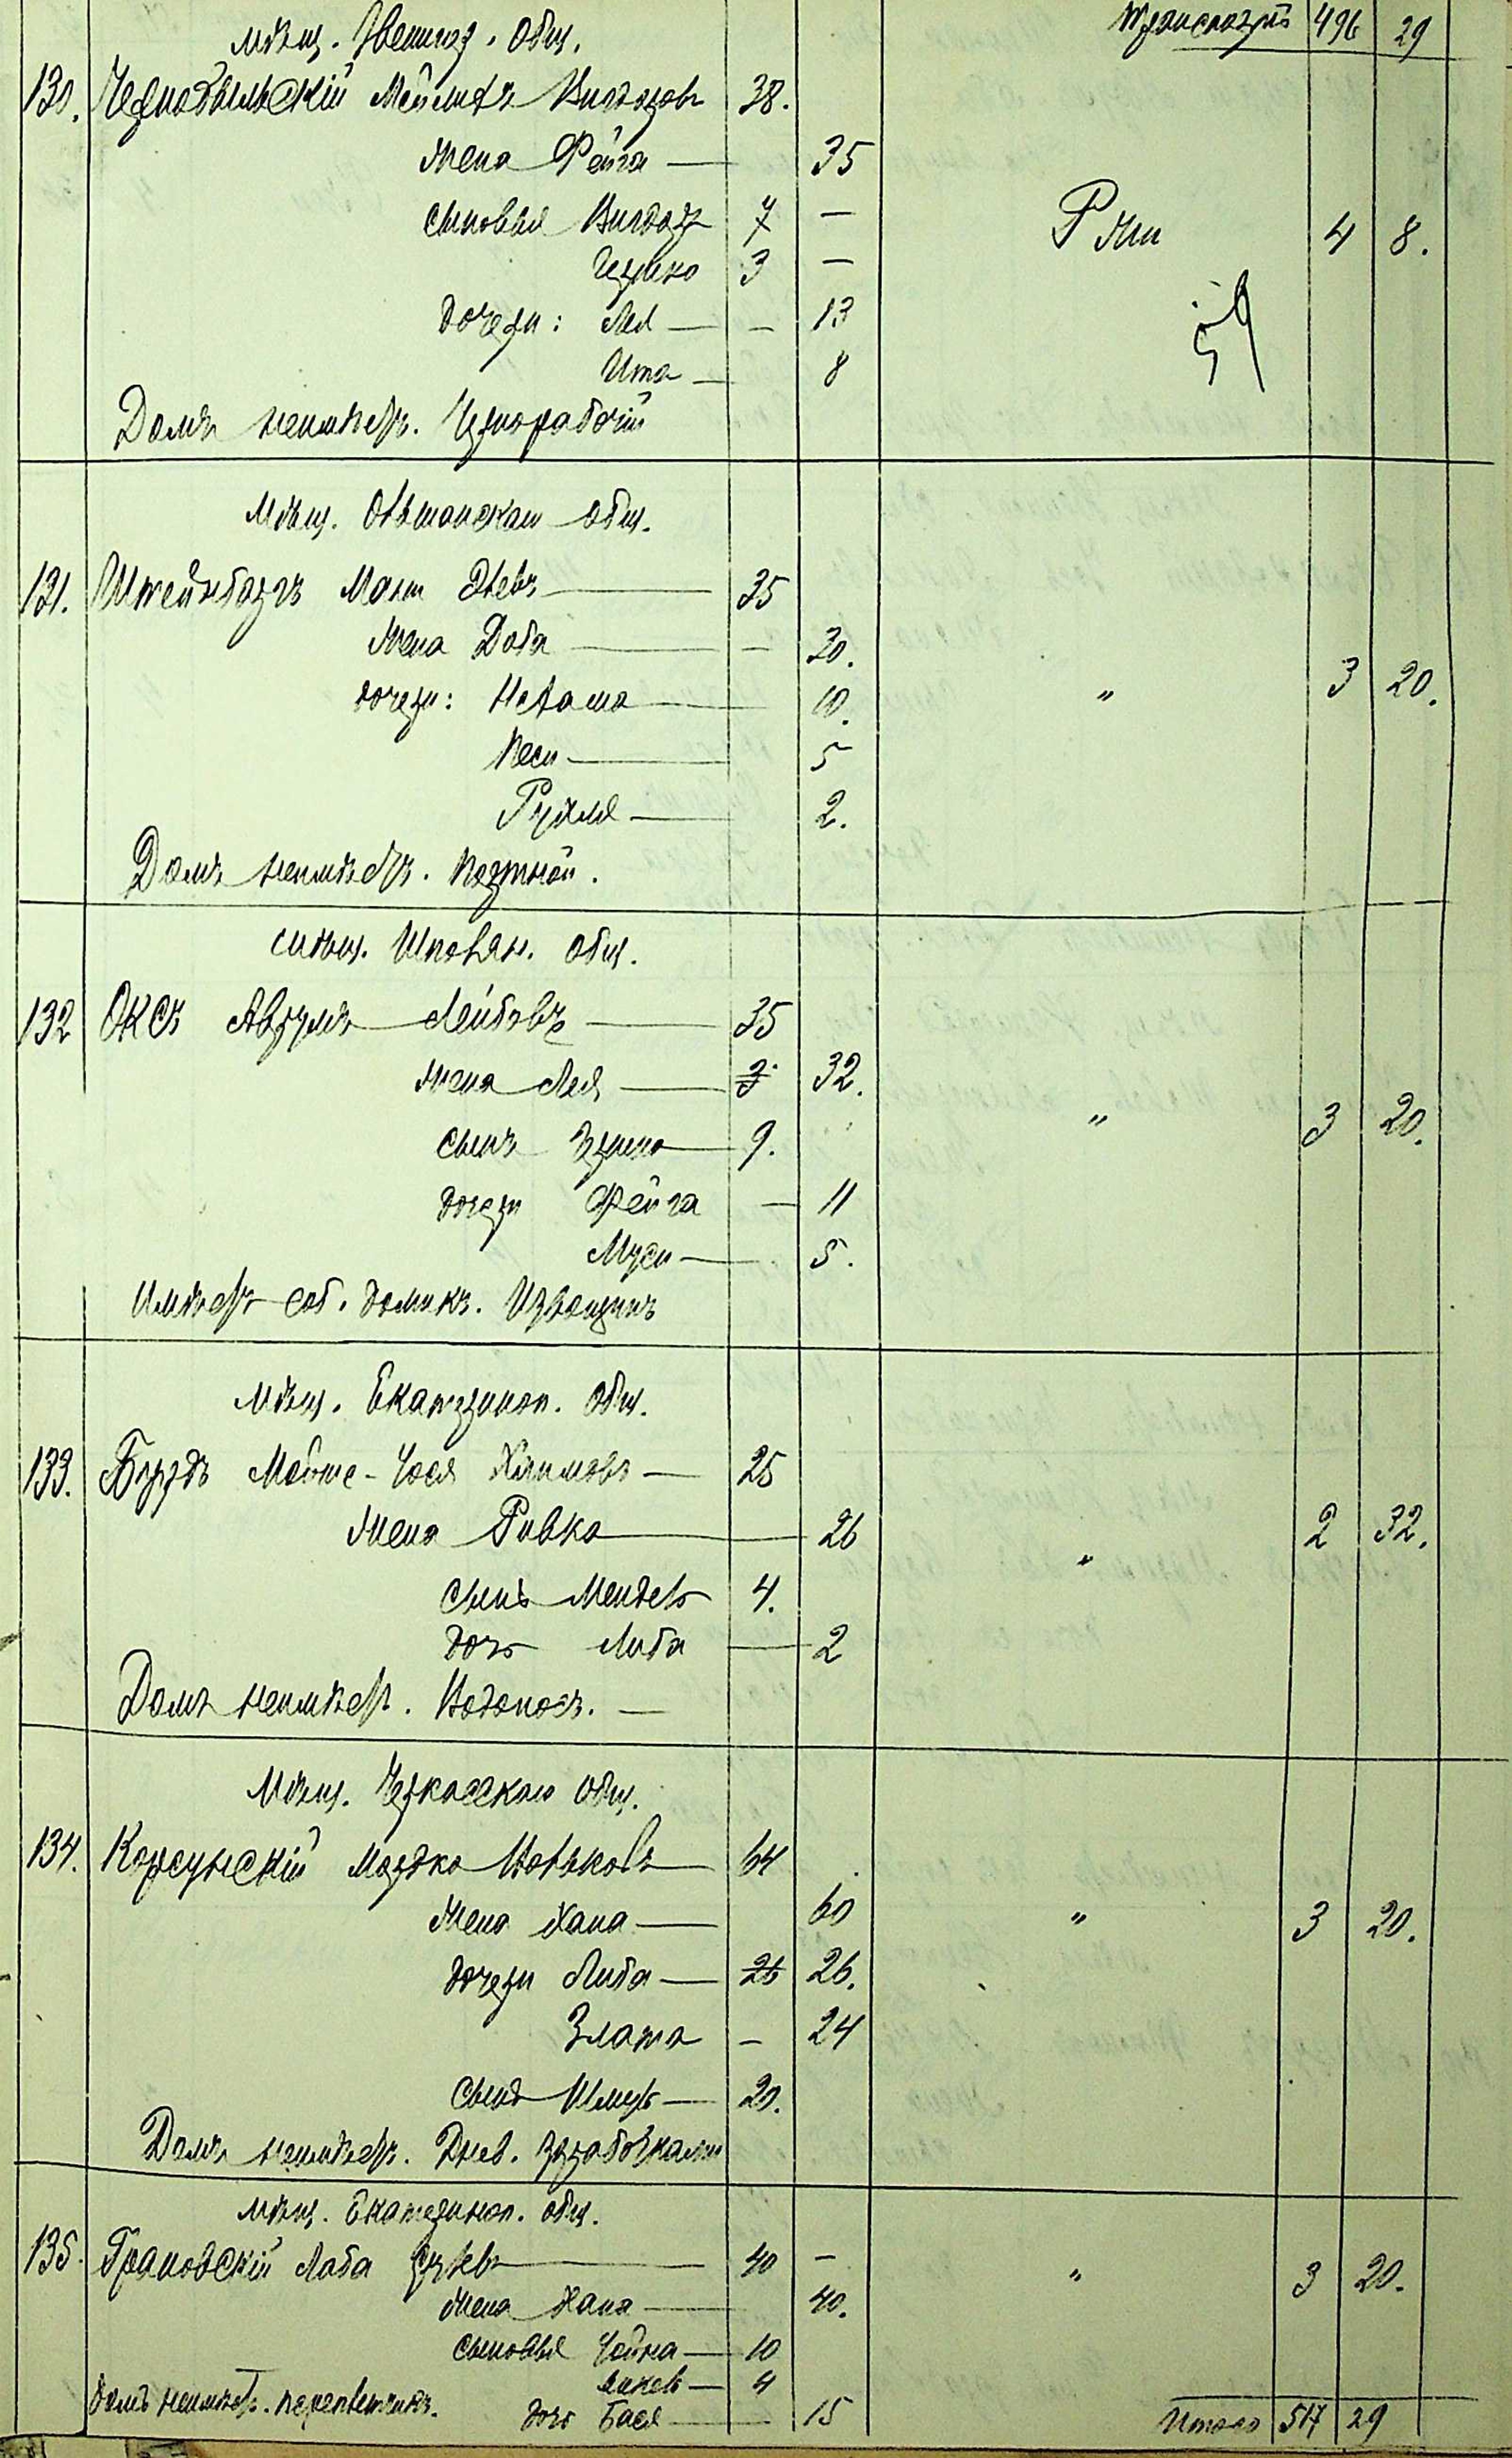 Транспортъ 496 29
Мѣщ. Звениг. общ.
130. Чернобыльскій Мейлихъ Вигдоровъ 38.
жена Фейга — 35
сыновья Вигдоръ 7 —
Гершко 3 —
дочери: Лея — — 13
Ита — 8
4 8.
Домъ неимѣетъ. Чернорабочій
Мѣщ. Ольшанскаго общ.
131. Штейнбаргъ Мотя Элевъ — 35
жена Доба — — 30.
дочери: Нехама — 10.
Песи — 5
Рухля — 2.
" 3 20.
Домъ неимѣетъ. Портной.
Мѣщ. Шполян. общ.
132 Оксъ Аврумъ Лейбовъ — 35
жена Лея — 3 32.
сынъ Эршко — 9.
дочери Фейга — 11
Муси — 5.
" 3 20.
Имѣетъ соб. домикъ. Извощикъ
Мѣщ. Екатериноп. общ.
133. Бурдъ Мойше-Іося Хаимовъ — 25
жена Ривка — 26
сынъ Мендель 4.
дочь Либа — 2
" 2 32.
Домъ неимѣетъ. Водоносъ. —
Мѣщ. Черкасскаго общ.
134. Корсунскій Мордко Вольковъ — 64
жена Хана — 60
дочери Либа — 26 26.
Злата — 24
сынъ Шмуль — 20.
" 3 20.
Домъ неимѣетъ. Днев. заработками
Мѣщ. Екатериноп. общ.
135. Грановскій Лейба Срулевъ — 40 —
жена Хана — 40.
сыновья Іойна — 10
Янкель — 4
дочь Бася — 15
" 3 20.
Домъ неимѣетъ. переплетчикъ.
Итого 517 29